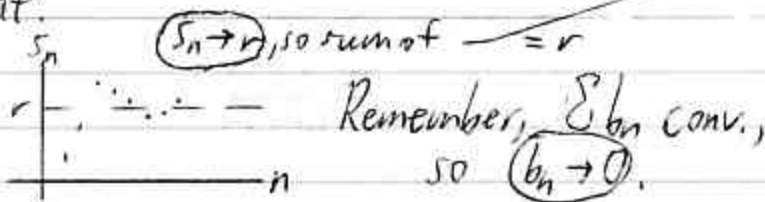 ut.
Sₙ → r, so sum of = r
Sₙ
r
Remember, Σ bₙ conv.,
n
so bₙ → 0.